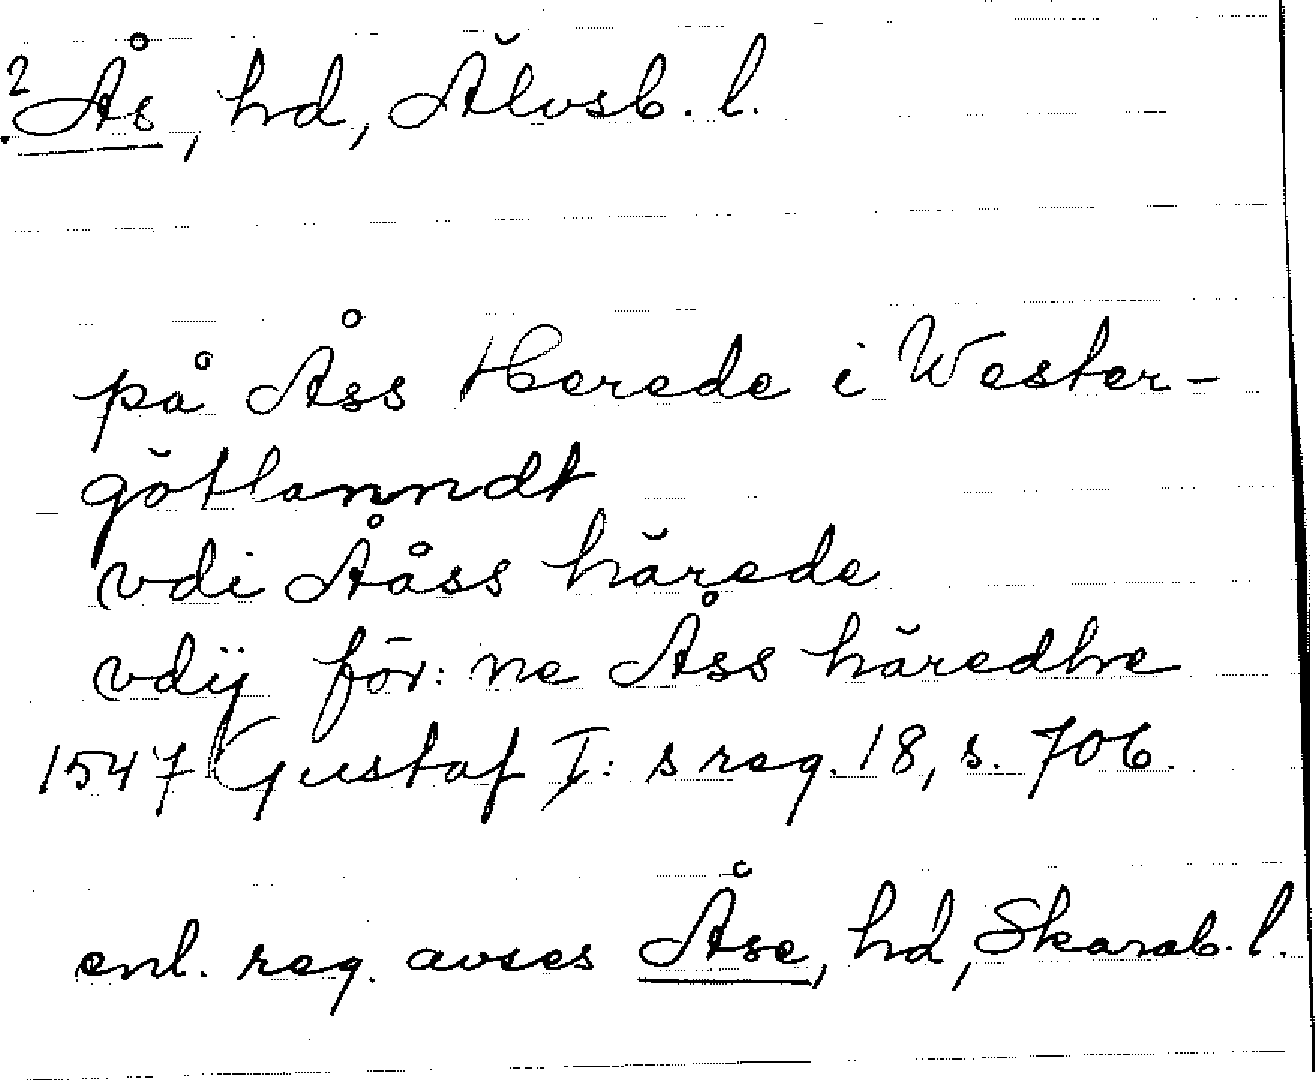 ?Ås, hd, Älvsb. l.
på Åss Herede i Wester-
götlanndt
vdi Ååss härede
vdÿ för:ne Åss häredhe
1547 Gustaf I:s reg. 18, s. 706.
enl. reg. avses Åse, hd, Skarab. l.